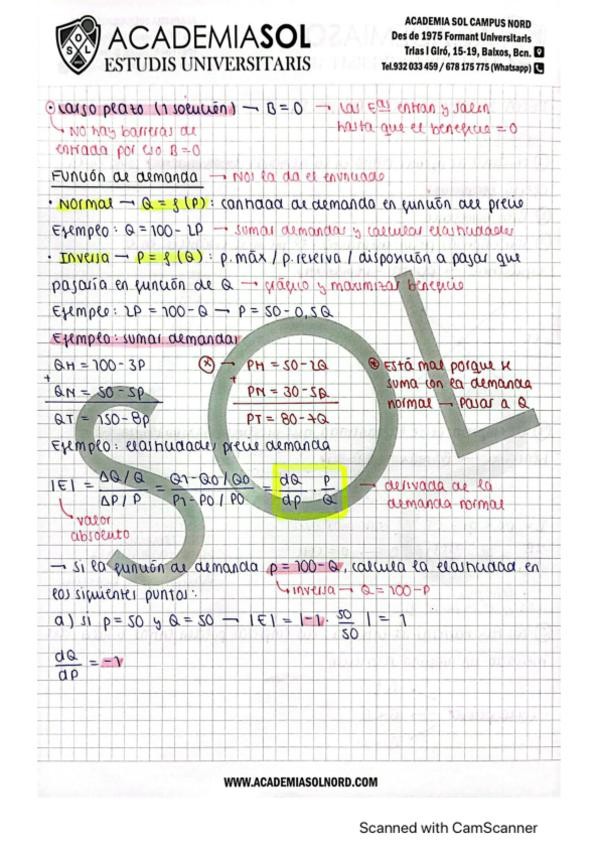 ACADEMIASOL
ESTUDIS UNIVERSITARIS
ACADEMIA SOL CAMPUS NORD
Des de 1975 Formant Universitaris
Trias I Giró, 15-19, Baixos, Bcn.
Tel.932 033 459 / 678 175 775 (Whatsapp)
Largo plazo (1 solución) → B = 0 → Las Eas entran y salen
↳ No hay barreras de hasta que el beneficio = 0
entrada por eso B = 0
Función de demanda → NOS la da el enunciado
• Normal → Q = f (P) : cantidad de demanda en función del precio
Ejemplo: Q = 100 - 2P → sumar demandas y calcular elasticidades
• Inversa → P = f (Q) : p. máx / p. reserva / disposición a pagar que
pagaría en función de Q → gráfico y maximizar beneficio
Ejemplo: 2P = 100 - Q → P = 50 - 0,5Q
Ejemplo: sumar demandas
QH = 100 - 3P (x) → PH = 50 - 2Q * Está mal porque se
+ QN = 50 - 5P + PN = 30 - 5Q suma con la demanda
QT = 150 - 8P PT = 80 - 7Q normal → Pasar a Q
Ejemplo: elasticidades precio demanda
|E| = ΔQ / Q / ΔP / P = Q1 - Q0 / Q0 / P1 - P0 / P0 = dQ/dP · P/Q → derivada de la
demanda normal
↳ valor
absoluto
→ Si la función de demanda p = 100 - Q, calcula la elasticidad en
los siguientes puntos: ↳ inversa → Q = 100 - P
a) si p = 50 y Q = 50 → |E| = |-1 · 50/50 | = 1
dQ/dP = -1
SOL
WWW.ACADEMIASOLNORD.COM
Scanned with CamScanner